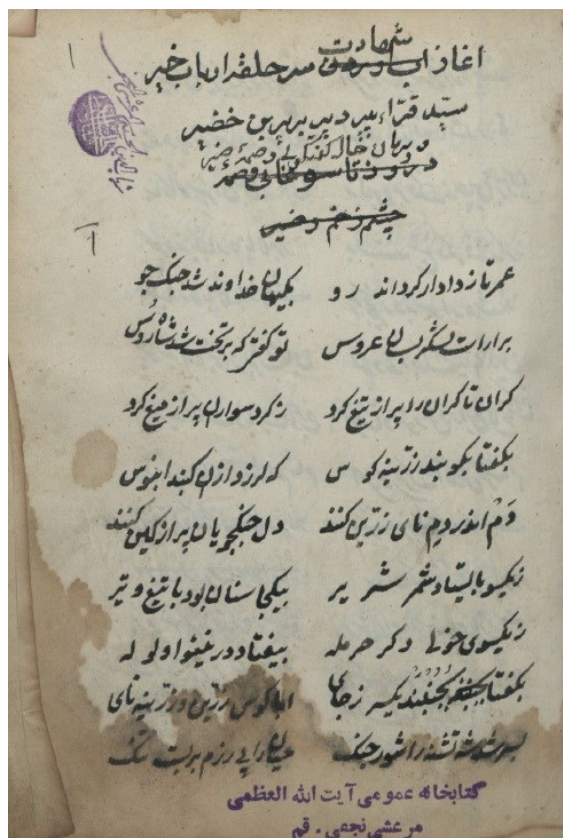 ۱
شهادت
اغاز سر حلقه ارباب خیر
سید قراء پیر دیر بریر بن خضیر
و بریان خاک
چشم زخم
۱
عمر تا ز دادار کرداند رو بکیهان خداوند شد جنک جو
برارات لشکر بسان عروس تو گفتی که بر تخت شد شاه روس
کران تا کران را پر از تیغ کرد ز کرد سواران پر از میغ کرد
بکفتا بکوبند زرینه کوس که لرزد ازان کنبد ابنوس
دم اندر دم نای زرین کنند دل جنکجویان پر از کین کنند
زیکسو بایستاد شمر شریر بیکجا سنان بود با تیغ و تیر
زیکسوی خولی دکر حرمله بیفتاد در نینوا ولوله
بکفتا بجنبند یکسر زجای ابا کوس زرین و زرینه نای
تشنه را شور جنک میان را پی رزم بر بست تنک
کتابخانه عمومی آیت الله العظمی
مرعشی نجفی - قم